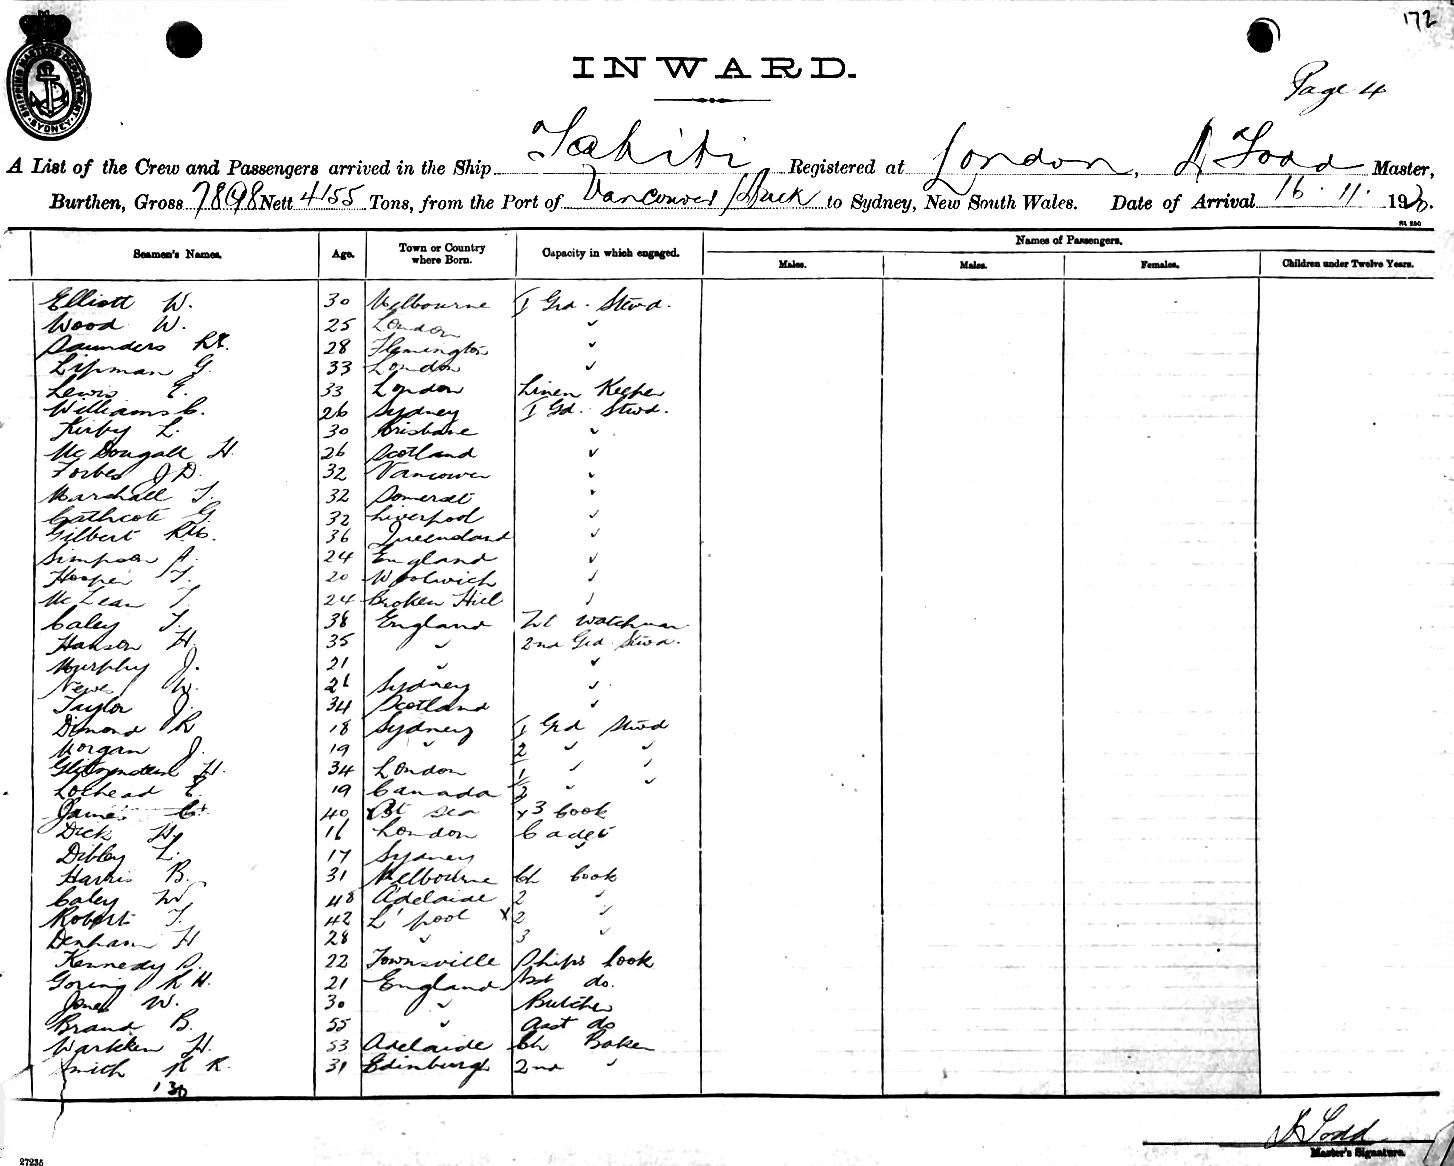 172
INWARD.
Page 4
SHIPPING MASTER'S DEPARTMENT SYDNEY
A List of the Crew and Passengers arrived in the Ship Tahiti Registered at London, A Todd Master,
Burthen, Gross 7898 Nett 4155 Tons, from the Port of Vancouver to Sydney, New South Wales. Date of Arrival 16.11.1920.
Seamen's Names. Age. Town or Country where Born. Capacity in which engaged. Names of Passengers.
Males. Males. Females. Children under Twelve Years.
Elliott W. 30 Melbourne 1 Grd. Stwd.
Wood W. 25 London "
Saunders 28 Flemington "
Lipman G. 33 London "
Lewis E. 33 London Linen Keeper
Williams C. 26 Sydney 1 Gd. Stwd.
Kirby L. 30 Brisbane "
McDougall H. 26 Scotland "
Forbes J D. 32 Vancouver "
Marshall T. 32 Somerset "
Cathcote G. 32 Liverpool "
Gilbert 36 Queensland "
Simpson A. 24 England "
Hooper T. 20 Woolwich "
McLean T 24 Broken Hill "
Caley T. 38 England Nt Watchman
Hanson H. 35 " 2nd Grd Stwd.
Murphy J. 21 " "
News W. 21 Sydney "
Taylor J. 34 Scotland "
Dimond R 18 Sydney 1 Grd Stwd
Morgan J. 19 " 2 " "
H. 34 London 1 " "
Lochead E. 19 Canada 2 "
James C. 40 At sea x3 Cook
Dick Hy 16 London Cadet
Dibley L. 17 Sydney "
Harris B. 31 Melbourne Ch Cook
Caley W 48 Adelaide 2 "
Robert T. 42 L'pool x2 "
Denham H 28 " 3 "
Kennedy 22 Townsville Ships Cook
Goring R H. 21 England Ast do.
Jones W. 30 " Butcher
Brand B. 55 " Asst do
Warkken H. 53 Adelaide Ch Baker
Smith R R. 31 Edinburg 2nd "
130
A Todd
Master's Signature.
27235